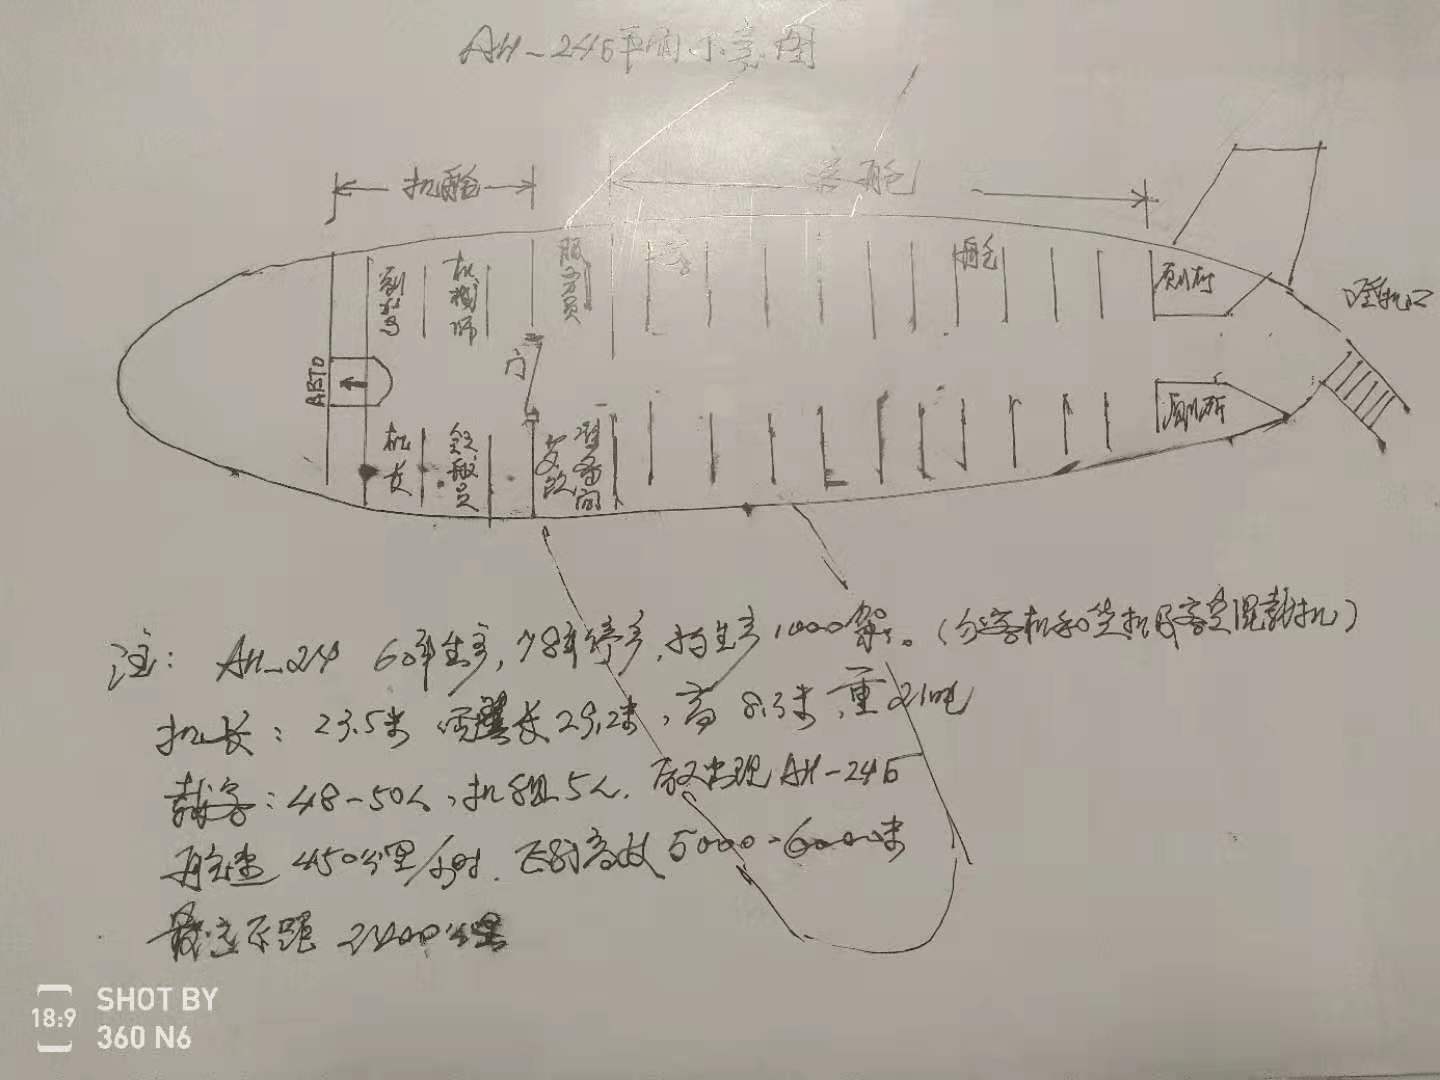 AH-24Б平面示意图
机舱
客舱
副驾驶
机械师
服务员
客
舱
厕所
登机口
АВТО
门
机长
领航员
准备间
厕所
注: AH-24 60年生产,78年停产,约生产1000架。(分客机和货机及客货混载机)
机长: 23.5米 两翼长29.2米,高 8.3米 重21吨
载客:48-50人、机组5人. 后又出现AH-24Б
航速 450公里/小时. 飞行高度 5000-6000米
最远飞距 2400公里
18:9
SHOT BY
360 N6